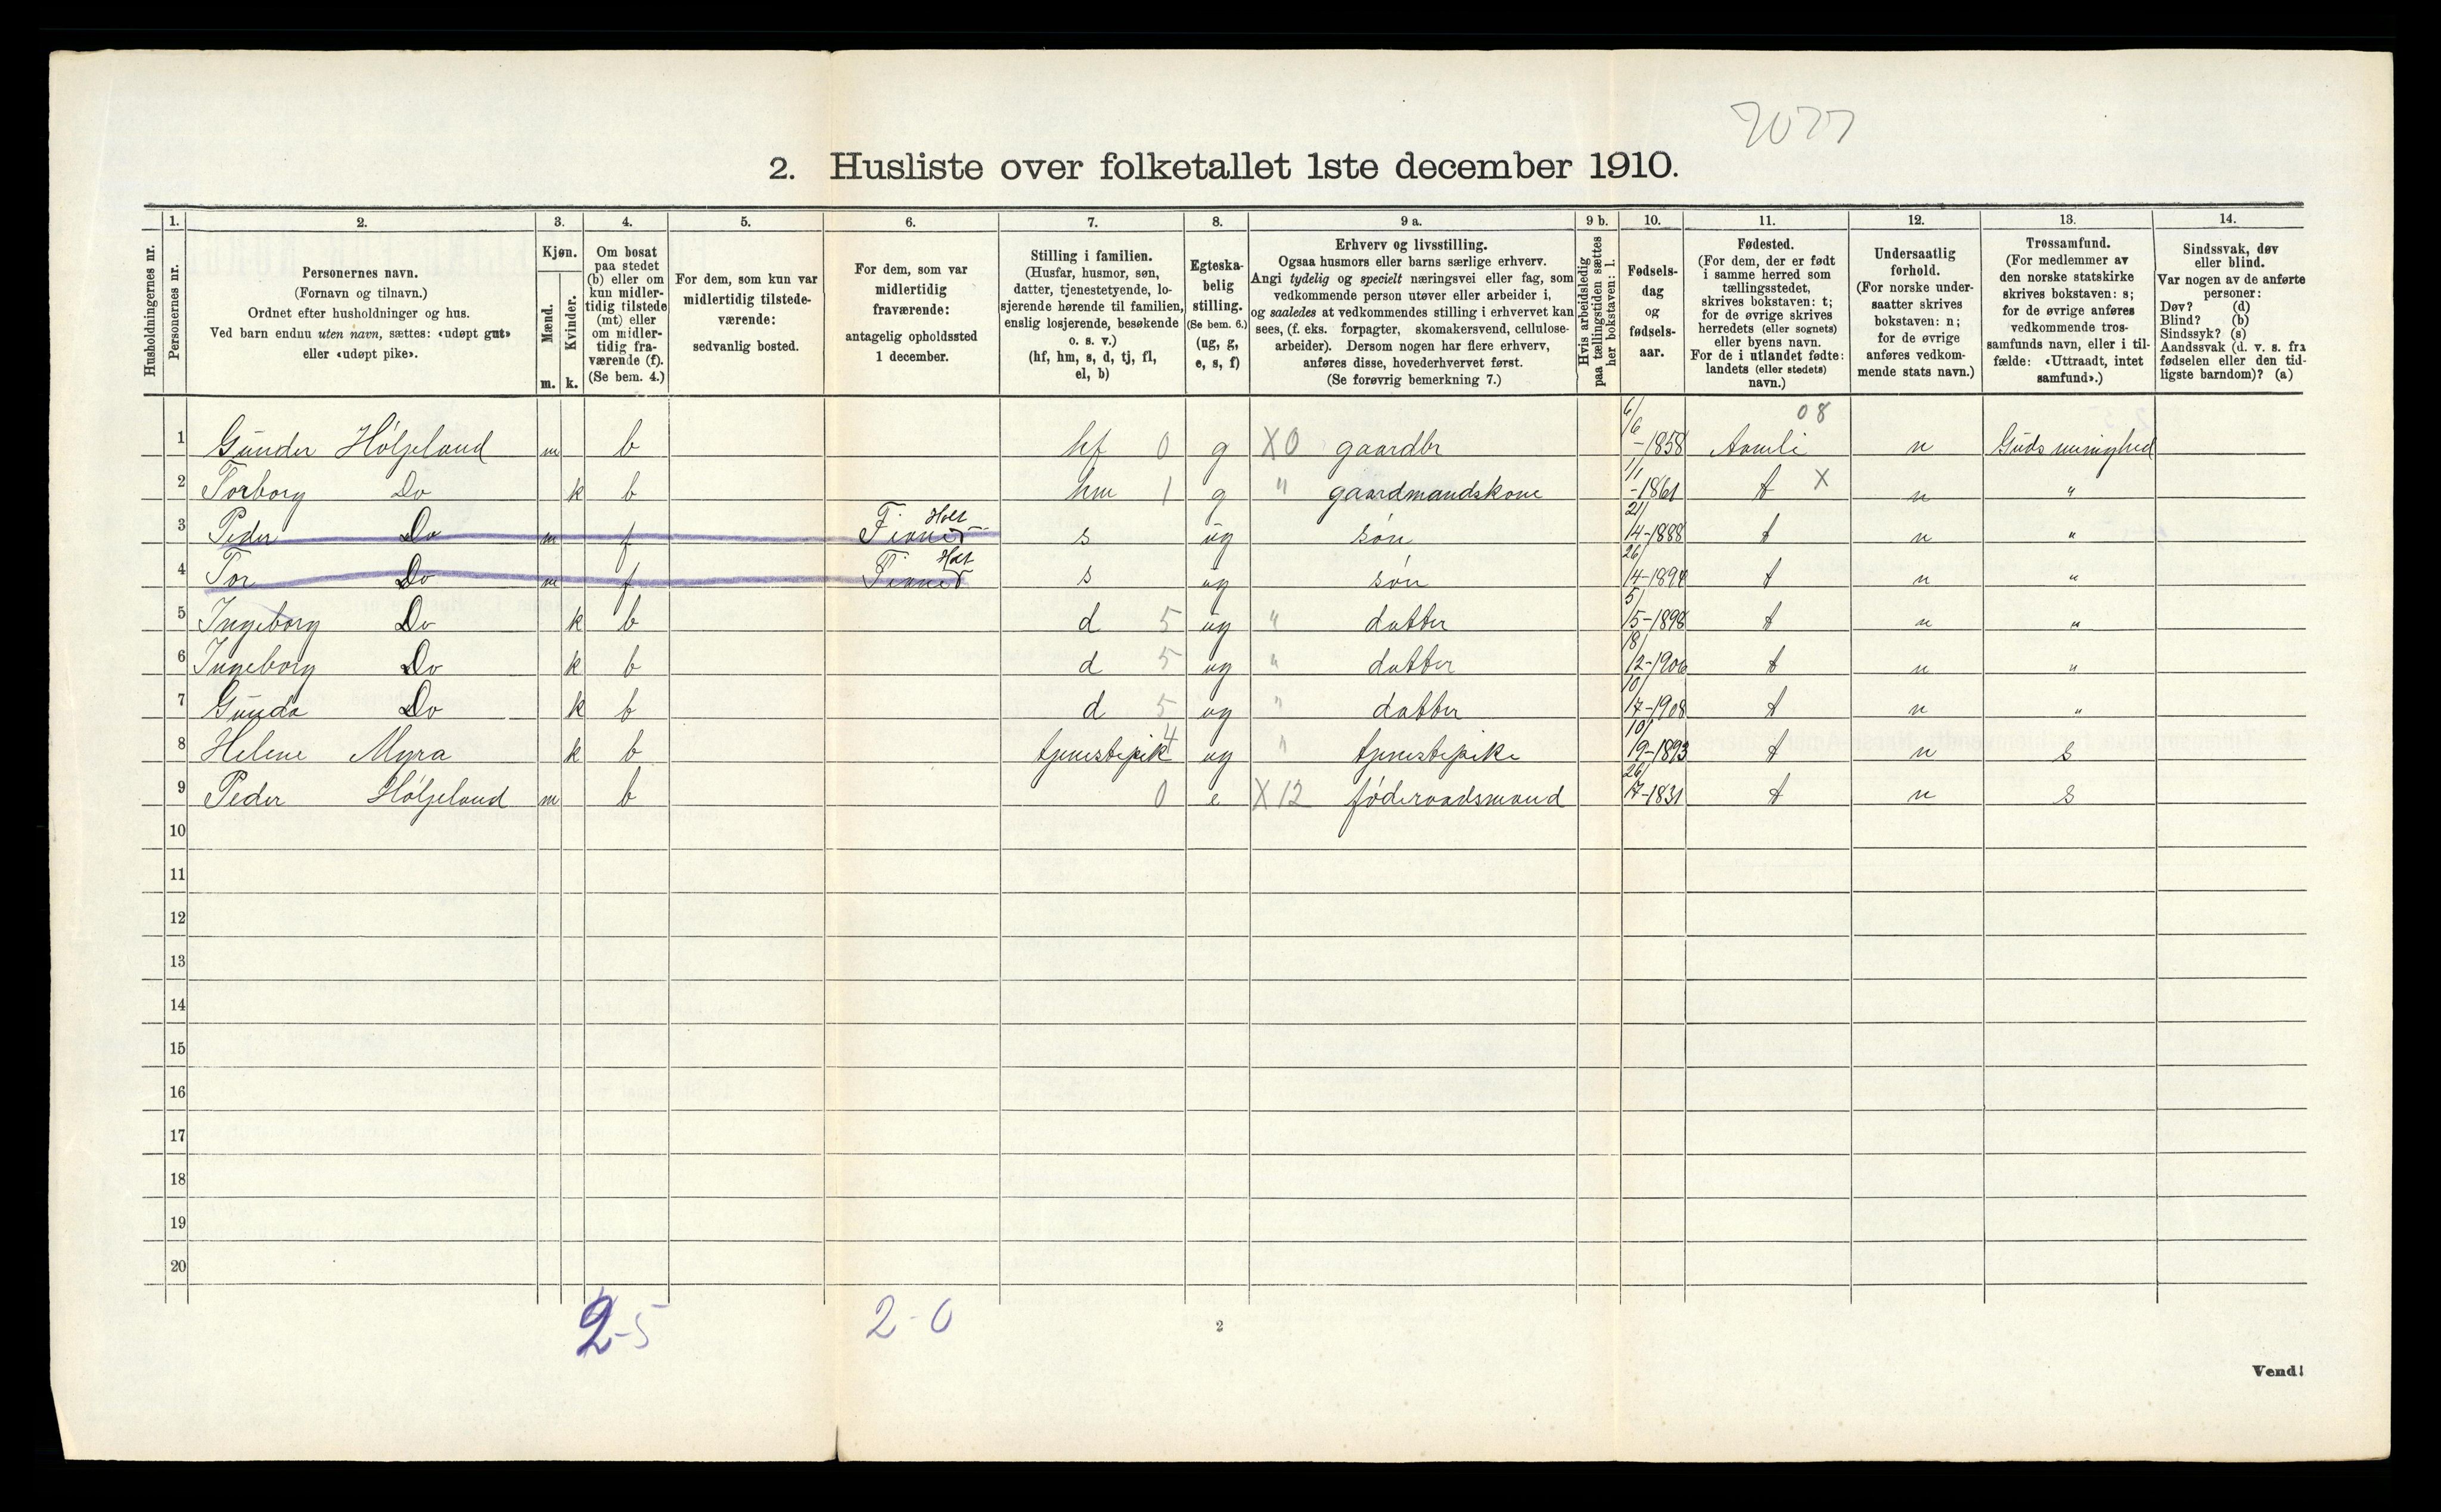 7077
2. Husliste over folketallet 1ste december 1910.
1. 2. 3. 4. 5. 6. 7. 8. 9 a. 9 b. 10. 11. 12. 13. 14.
Husholdningernes nr.
Personernes nr.
Personernes navn.
(Fornavn og tilnavn.)
Ordnet efter husholdninger og hus.
Ved barn endnu uten navn, sættes: «udøpt gut»
eller «udøpt pike».
Kjøn.
Mænd.
Kvinder.
m. k.
Om bosat
paa stedet
(b) eller om
kun midler-
tidig tilstede
(mt) eller
om midler-
tidig fra-
værende (f).
(Se bem. 4.)
For dem, som kun var
midlertidig tilstede-
værende:
sedvanlig bosted.
For dem, som var
midlertidig
fraværende:
antagelig opholdssted
1 december.
Stilling i familien.
(Husfar, husmor, søn,
datter, tjenestetyende, lo-
sjerende hørende til familien,
enslig losjerende, besøkende
o. s. v.)
(hf, hm, s, d, tj, fl,
el, b)
Egteska-
belig
stilling.
(Se bem. 6.)
(ug, g,
e, s, f)
Erhverv og livsstilling.
Ogsaa husmors eller barns særlige erhverv.
Angi tydelig og specielt næringsvei eller fag, som
vedkommende person utøver eller arbeider i,
og saaledes at vedkommendes stilling i erhvervet kan
sees, (f. eks. forpagter, skomakersvend, cellulose-
arbeider). Dersom nogen har flere erhverv,
anføres disse, hovederhvervet først.
(Se forøvrig bemerkning 7.)
Hvis arbeidsledig
paa tællingstiden sættes
her bokstaven: l.
Fødsels-
dag
og
fødsels-
aar.
Fødested.
(For dem, der er født
i samme herred som
tællingsstedet,
skrives bokstaven: t;
for de øvrige skrives
herredets (eller sognets)
eller byens navn.
For de i utlandet fødte:
landets (eller stedets)
navn.)
Undersaatlig
forhold.
(For norske under-
saatter skrives
bokstaven: n;
for de øvrige
anføres vedkom-
mende stats navn.)
Trossamfund.
(For medlemmer av
den norske statskirke
skrives bokstaven: s;
for de øvrige anføres
vedkommende tros-
samfunds navn, eller i til-
fælde: «Uttraadt, intet
samfund».)
Sindssvak, døv
eller blind.
Var nogen av de anførte
personer:
Døv? (d)
Blind? (b)
Sindssyk? (s)
Aandssvak (d. v. s. fra
fødselen eller den tid-
ligste barndom)? (a)
08
1 Gunder Høljeland m b hf 0 g X0 gaardbr 6/6-1858 Aamli n Guds menighed
2 Torborg Do k b hm 1 g " gaardmandskone 1/1-1861 t X n "
3 Peder Do m f Holt s ug søn 21/4-1888 t n "
4 Tor Do m f Holt s ug søn 26/4-1894 t n "
5 Ingeborg Do k b d 5 ug " datter 5/5-1898 t n "
6 Ingeborg Do k b d 5 ug " datter 18/12-1906 t n "
7 Gunda Do k b d 5 ug " datter t n "
8 Helene Myra k b tjenestepik 4 ug " tjenestepike t n s
9 Peder Høljeland m b 0 e X12 føderaadsmand 26/7-1831 t n s
10
11
12
13
14
15
16
17
18
19
20
2-5 2-0
2
Vend!